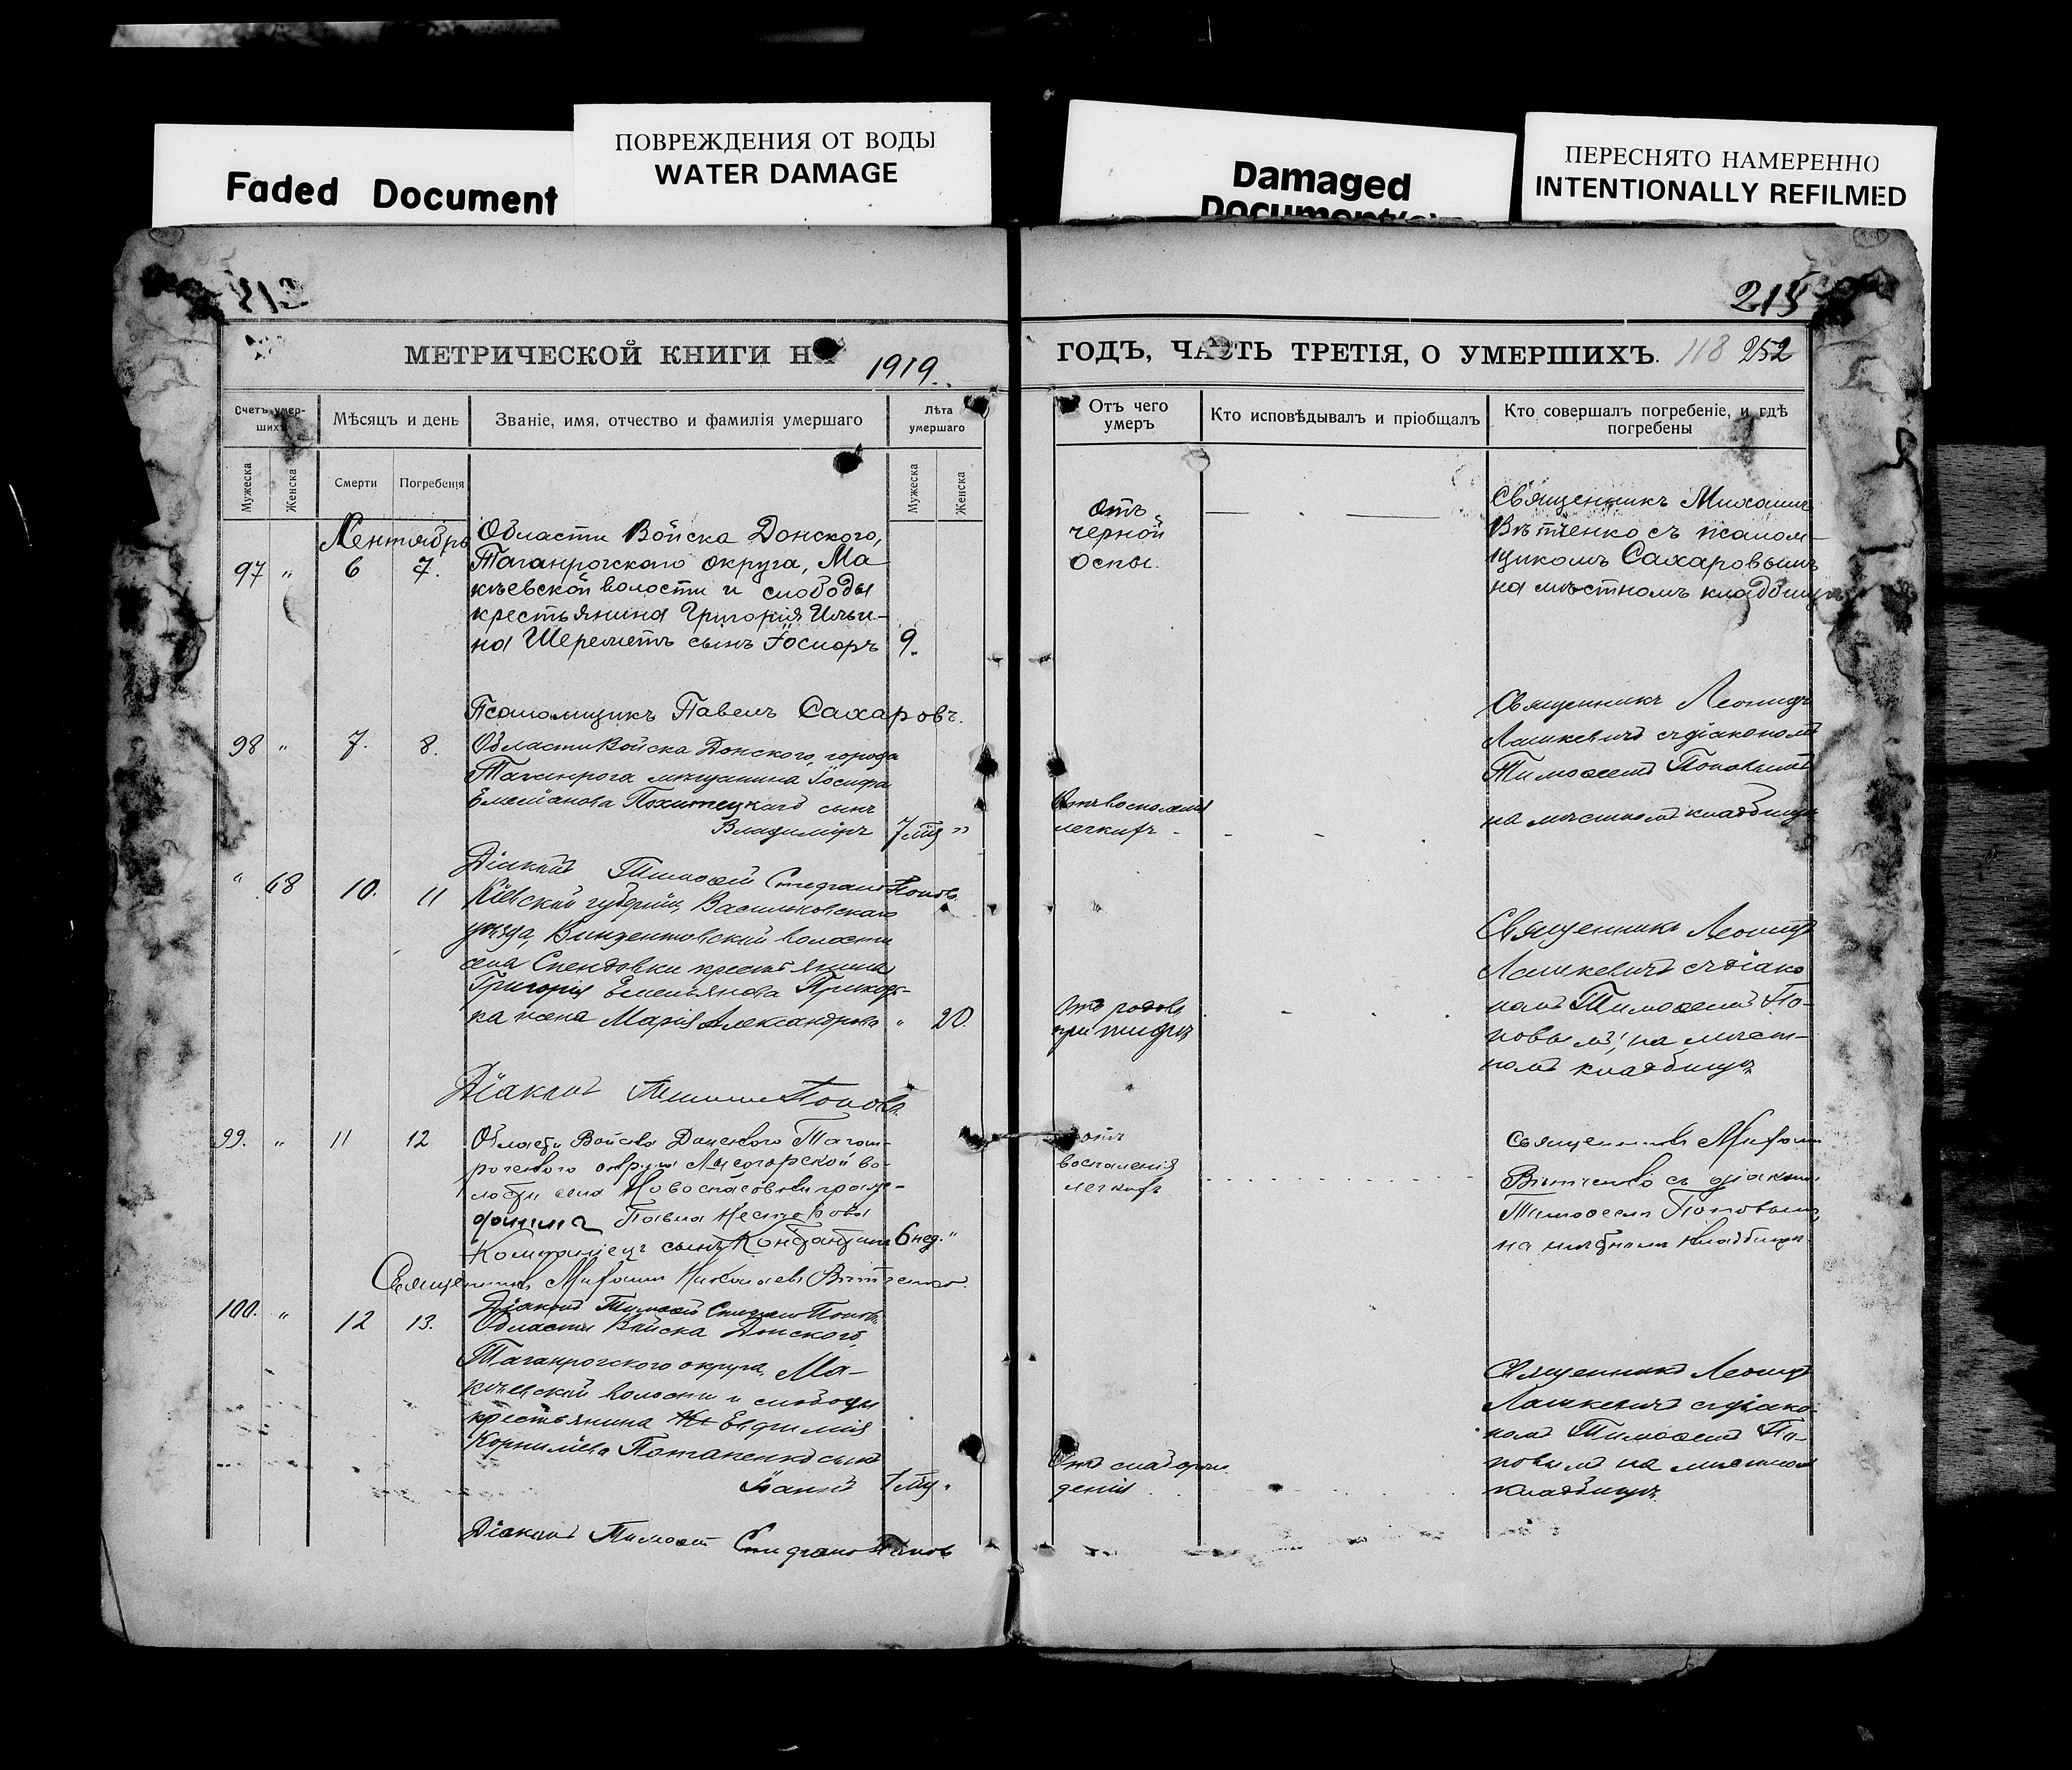 Faded Document
ПОВРЕЖДЕНИЯ ОТ ВОДЫ
WATER DAMAGE
Damaged
Document(s)
ПЕРЕСНЯТО НАМЕРЕННО
INTENTIONALLY REFILMED
215
МЕТРИЧЕСКОЙ КНИГИ НА 1919
Счетъ умер-
шихъ
Мѣсяцъ и день
Званіе, имя, отчество и фамилія умершаго
Лѣта
умершаго
Мужеска
Женска
Смерти
Погребенія
Мужеска
Женска
Сентябрь
97 " 6 7.
Области Войска Донского,
Таганрогскаго округа, Ма
кѣевской волости и слободы
крестьянина Григорія Ильи-
на Шереметъ сынъ 9.
Псаломщикъ Павелъ Сахаровъ.
98 " 7. 8.
Области Войска Донского, города
Таганрога мѣщанина Іосифа
Емельянова сынъ
Владиміръ 7 мѣ "
Діаконъ Тимоѳей Стефановъ Поповъ
" 68 10. 11
Кіевской губерніи, Васильковскаго
уѣзда, волости
села крестьянина
Григорія Емельянова Приходь-
ка жена Марія Александрова " 20.
Діаконъ Тимоѳей Поповъ.
99. " 11 12
Области Войска Донского Таган-
рогскаго округа Лысогорской во-
лости села Новоспасовки граж-
данина Павла Нестерова
сынъ Константинъ 6 нед. "
Священникъ Михаилъ Николаевъ Вѣтенко.
Діаконъ Тимоѳей Стефановъ Поповъ.
100. " 12 13.
Области Войска Донского,
Таганрогского округа, Ма-
кѣевской волости и слободы
крестьянина Евфимія
Корнилева Потапенко сынъ
1 мѣ.
Діаконъ Тимоѳей Стефановъ Поповъ
215
ГОДЪ, ЧАСТЬ ТРЕТІЯ, О УМЕРШИХЪ. 118 252
Отъ чего
умеръ
Кто исповѣдывалъ и пріобщалъ
Кто совершалъ погребеніе, и гдѣ
погребены
Отъ
черной
оспы.
Священникъ Михаилъ
Вѣтенко съ псалом-
щикомъ Сахаровымъ
на мѣстномъ кладбищѣ
Отъ воспаленія
легкихъ
Священникъ Леонидъ
Лашкевичъ съ діакономъ
Тимоѳеемъ Поповымъ
на мѣстномъ кладбищѣ
Отъ родовъ
при тифѣ
Священникъ Леонидъ
Лашкевичъ съ діако
номъ Тимоѳеемъ По-
повымъ, на мѣст-
номъ кладбищѣ
отъ
воспаленія
легкихъ
Священникъ Михаилъ
Вѣтенко съ діакономъ
Тимоѳеемъ Поповымъ,
на мѣстномъ кладбищѣ
Отъ слаборож
денія
Священникъ Леонидъ
Лашкевичъ съ діако-
номъ Тимоѳеемъ По-
повымъ на мѣстномъ
кладбищѣ.